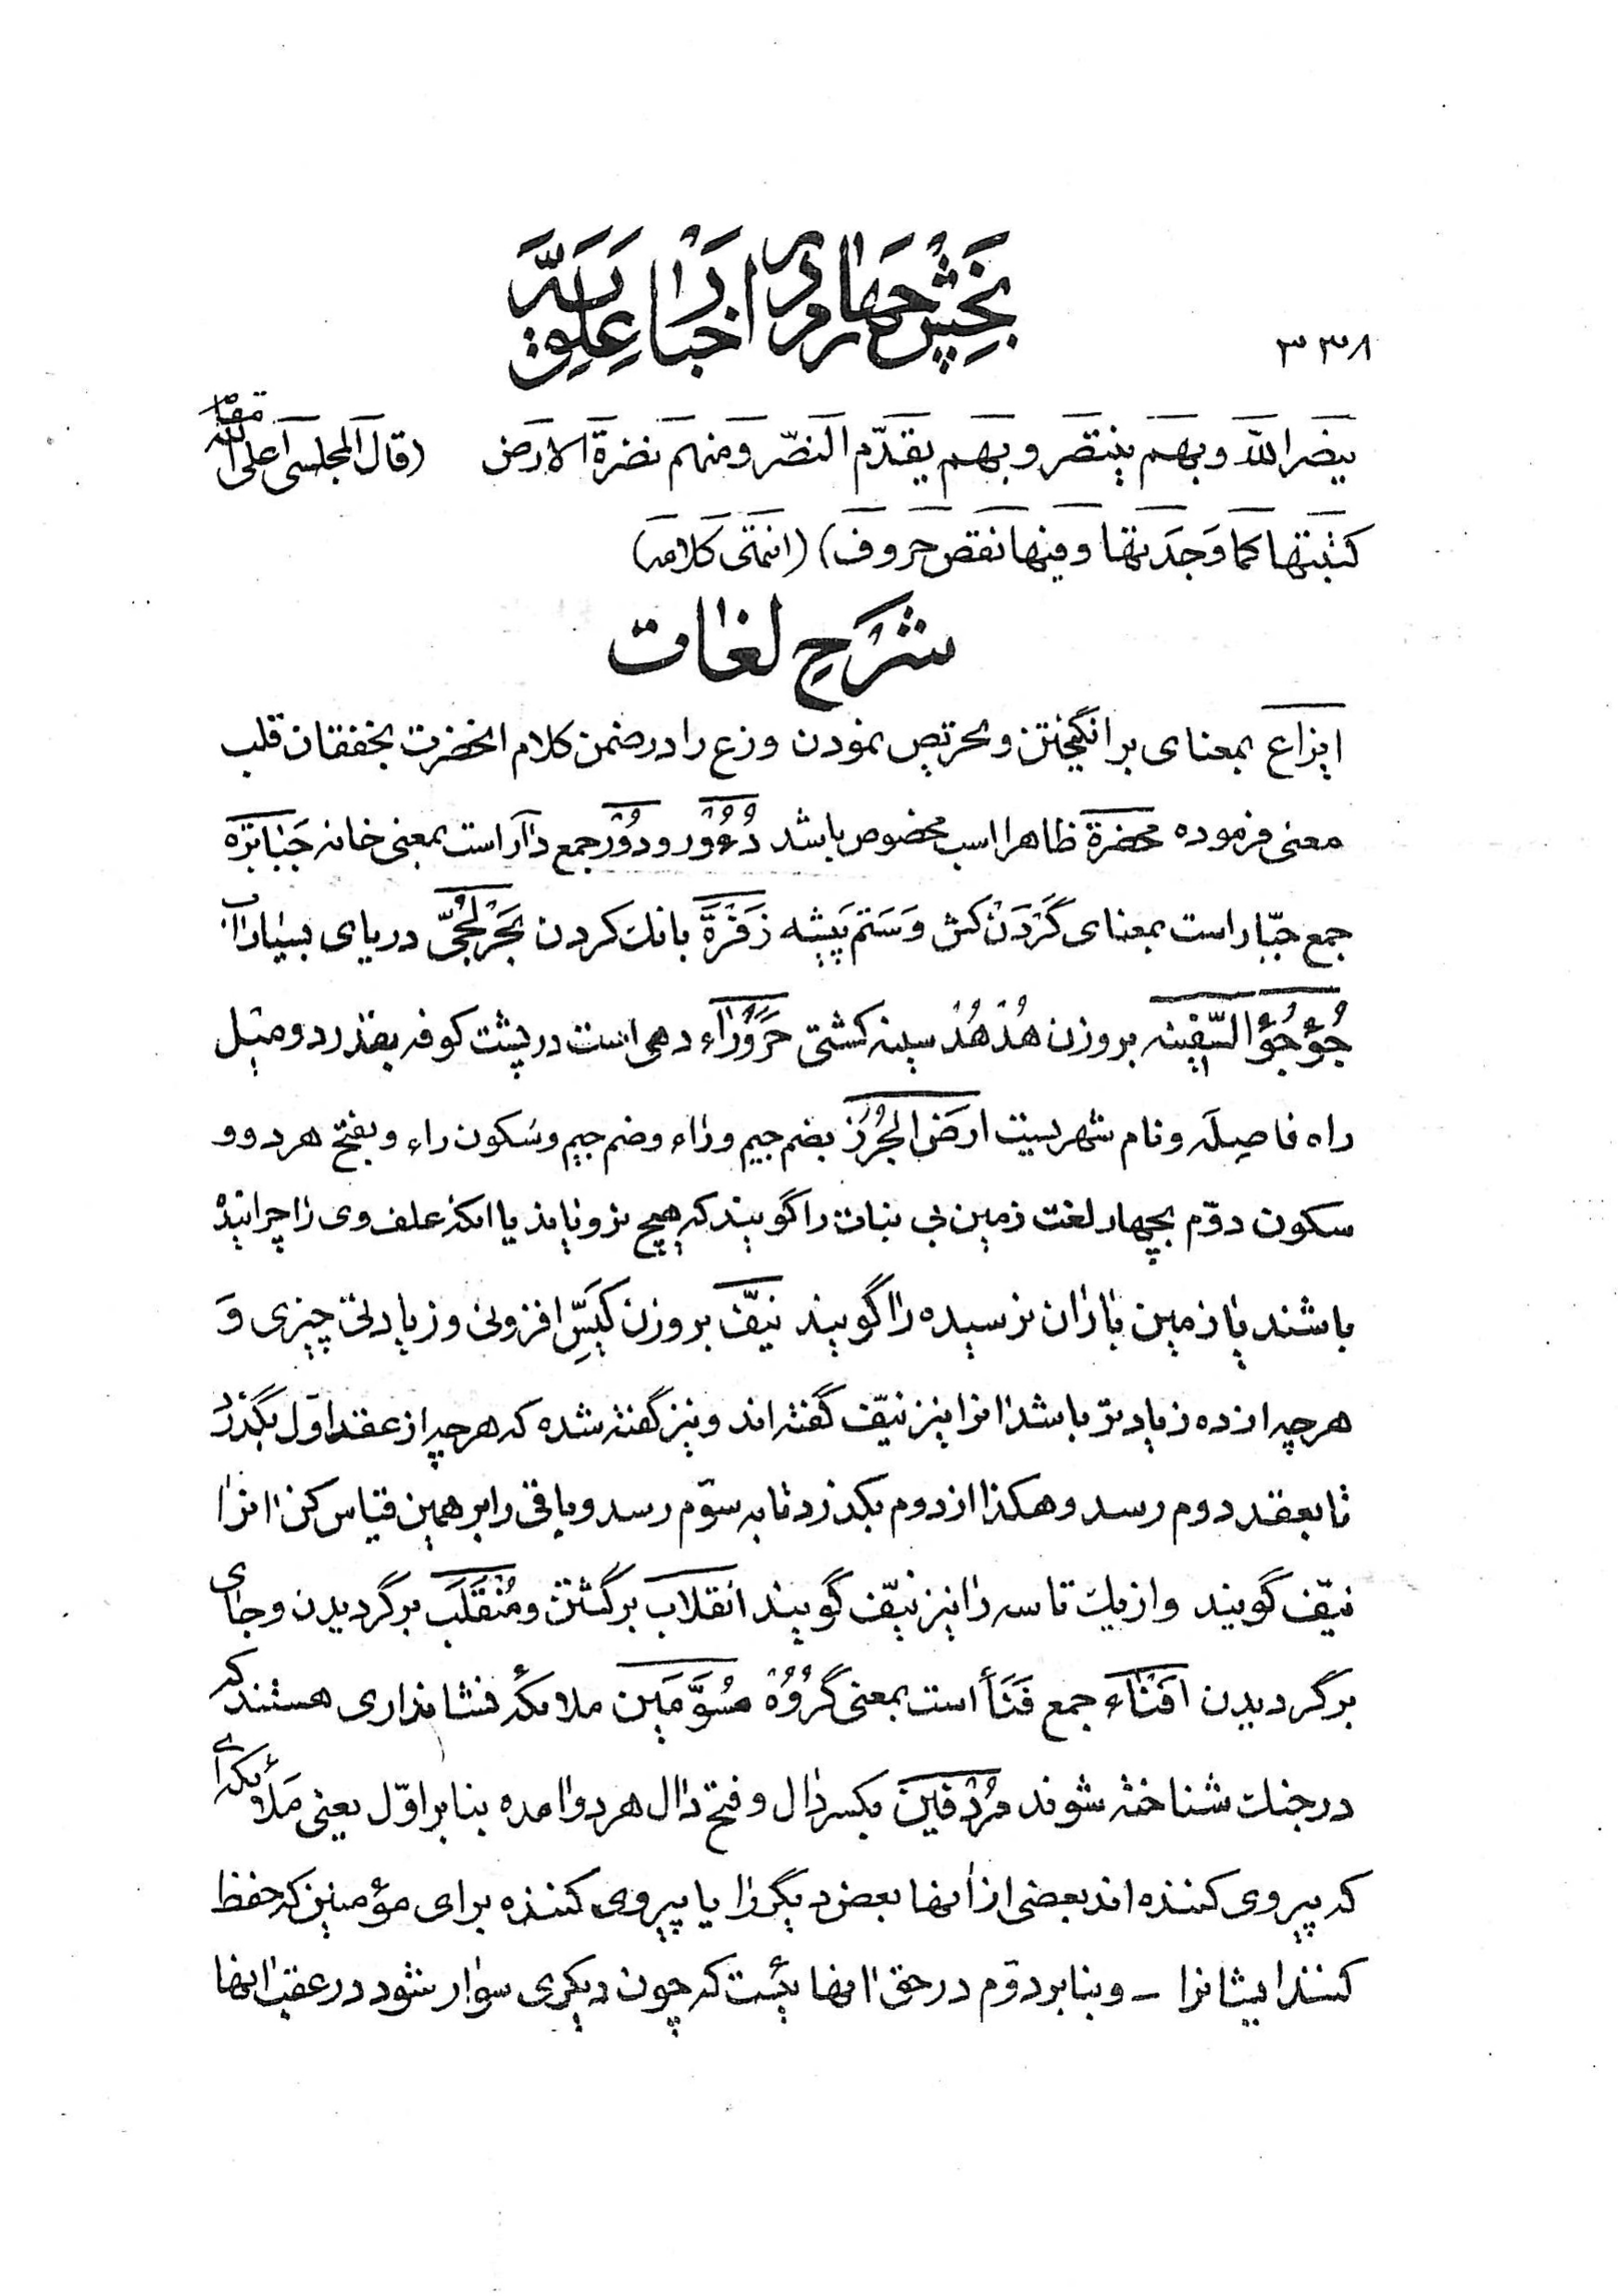 ۳۳۸
بخش چهارم در اخبار علویه
ینصر الله وبهم ینتصر وبهم یقدّم النصر ومنهم نضرة الارض (قال المجلسی اعلی الله مقامه
کتبتها کما وجدتها وفیها نقص حروف) (انتهی کلامه)
شرح لغات
ایزاع بمعنای برانگیختن وتحریص نمودن وزع را در ضمن کلام انحضرت بخفقان قلب
معنی فرموده محضرة ظاهرا اسب مخصوص باشد دُءُوْر ودُوْر جمع دار است بمعنی خانه جَبابَرَه
جمع جبّار است بمعنای گَرْدَن کش وَسَتم پَیشه زَفْرَةَ بانك کردن بَحْرلُجّی دریای بسیار اب
جُؤجُؤ السّفینه بروزن هُدْهُدْ سینه کشتی حَرَوُرَاء دهی است در پشت کوفه بقدر دو میل
راه فاصِله ونام شهریست ارض الجُرُز بضم جیم وراء وضم جیم وسکون راء وبفتح هر دو و
سکون دوّم بچهار لغت زمین بی نبات را گویند که هیچ نرویاند یا انکه علف وی را چرانیده
باشند یا زمین باران نرسیده را گویند نیّف بروزن کیّس افزونی وزیادتی چیزی وَ
هرچه از ده زیادتر باشد انرا نیز نیّف گفته اند ونیز گفته شده که هرچه از عقد اوّل بگذرد
تا بعقد دوم رسد وهکذا از دوم بگذرد تا به سوّم رسد وباقی را بر همین قیاس کن انرا
نیّف گویند وازیك تا سه را نیز نیّف گویند انقلاب برگشتن ومُنْقَلَبَ برگردیدن وجای
برگردیدن افناء جمع فَنَأ است بمعنی گُرُوُهْ مسُوَّمَین ملائکهٔ نشانداری هستند که
در جنك شناخته شوند مُرْدفَین بکسر دال وفتح دال هر دو امده بنا بر اوّل یعنی مَلائکه ای
که پیروی کننده اند بعضی از انها بعض دیگر را یا پیروی کننده برای مؤمنین که حفظ
کنند ایشانرا – وبنا بر دوّم در حق انها ئیست که چون دیگری سوار شود در عقب انها